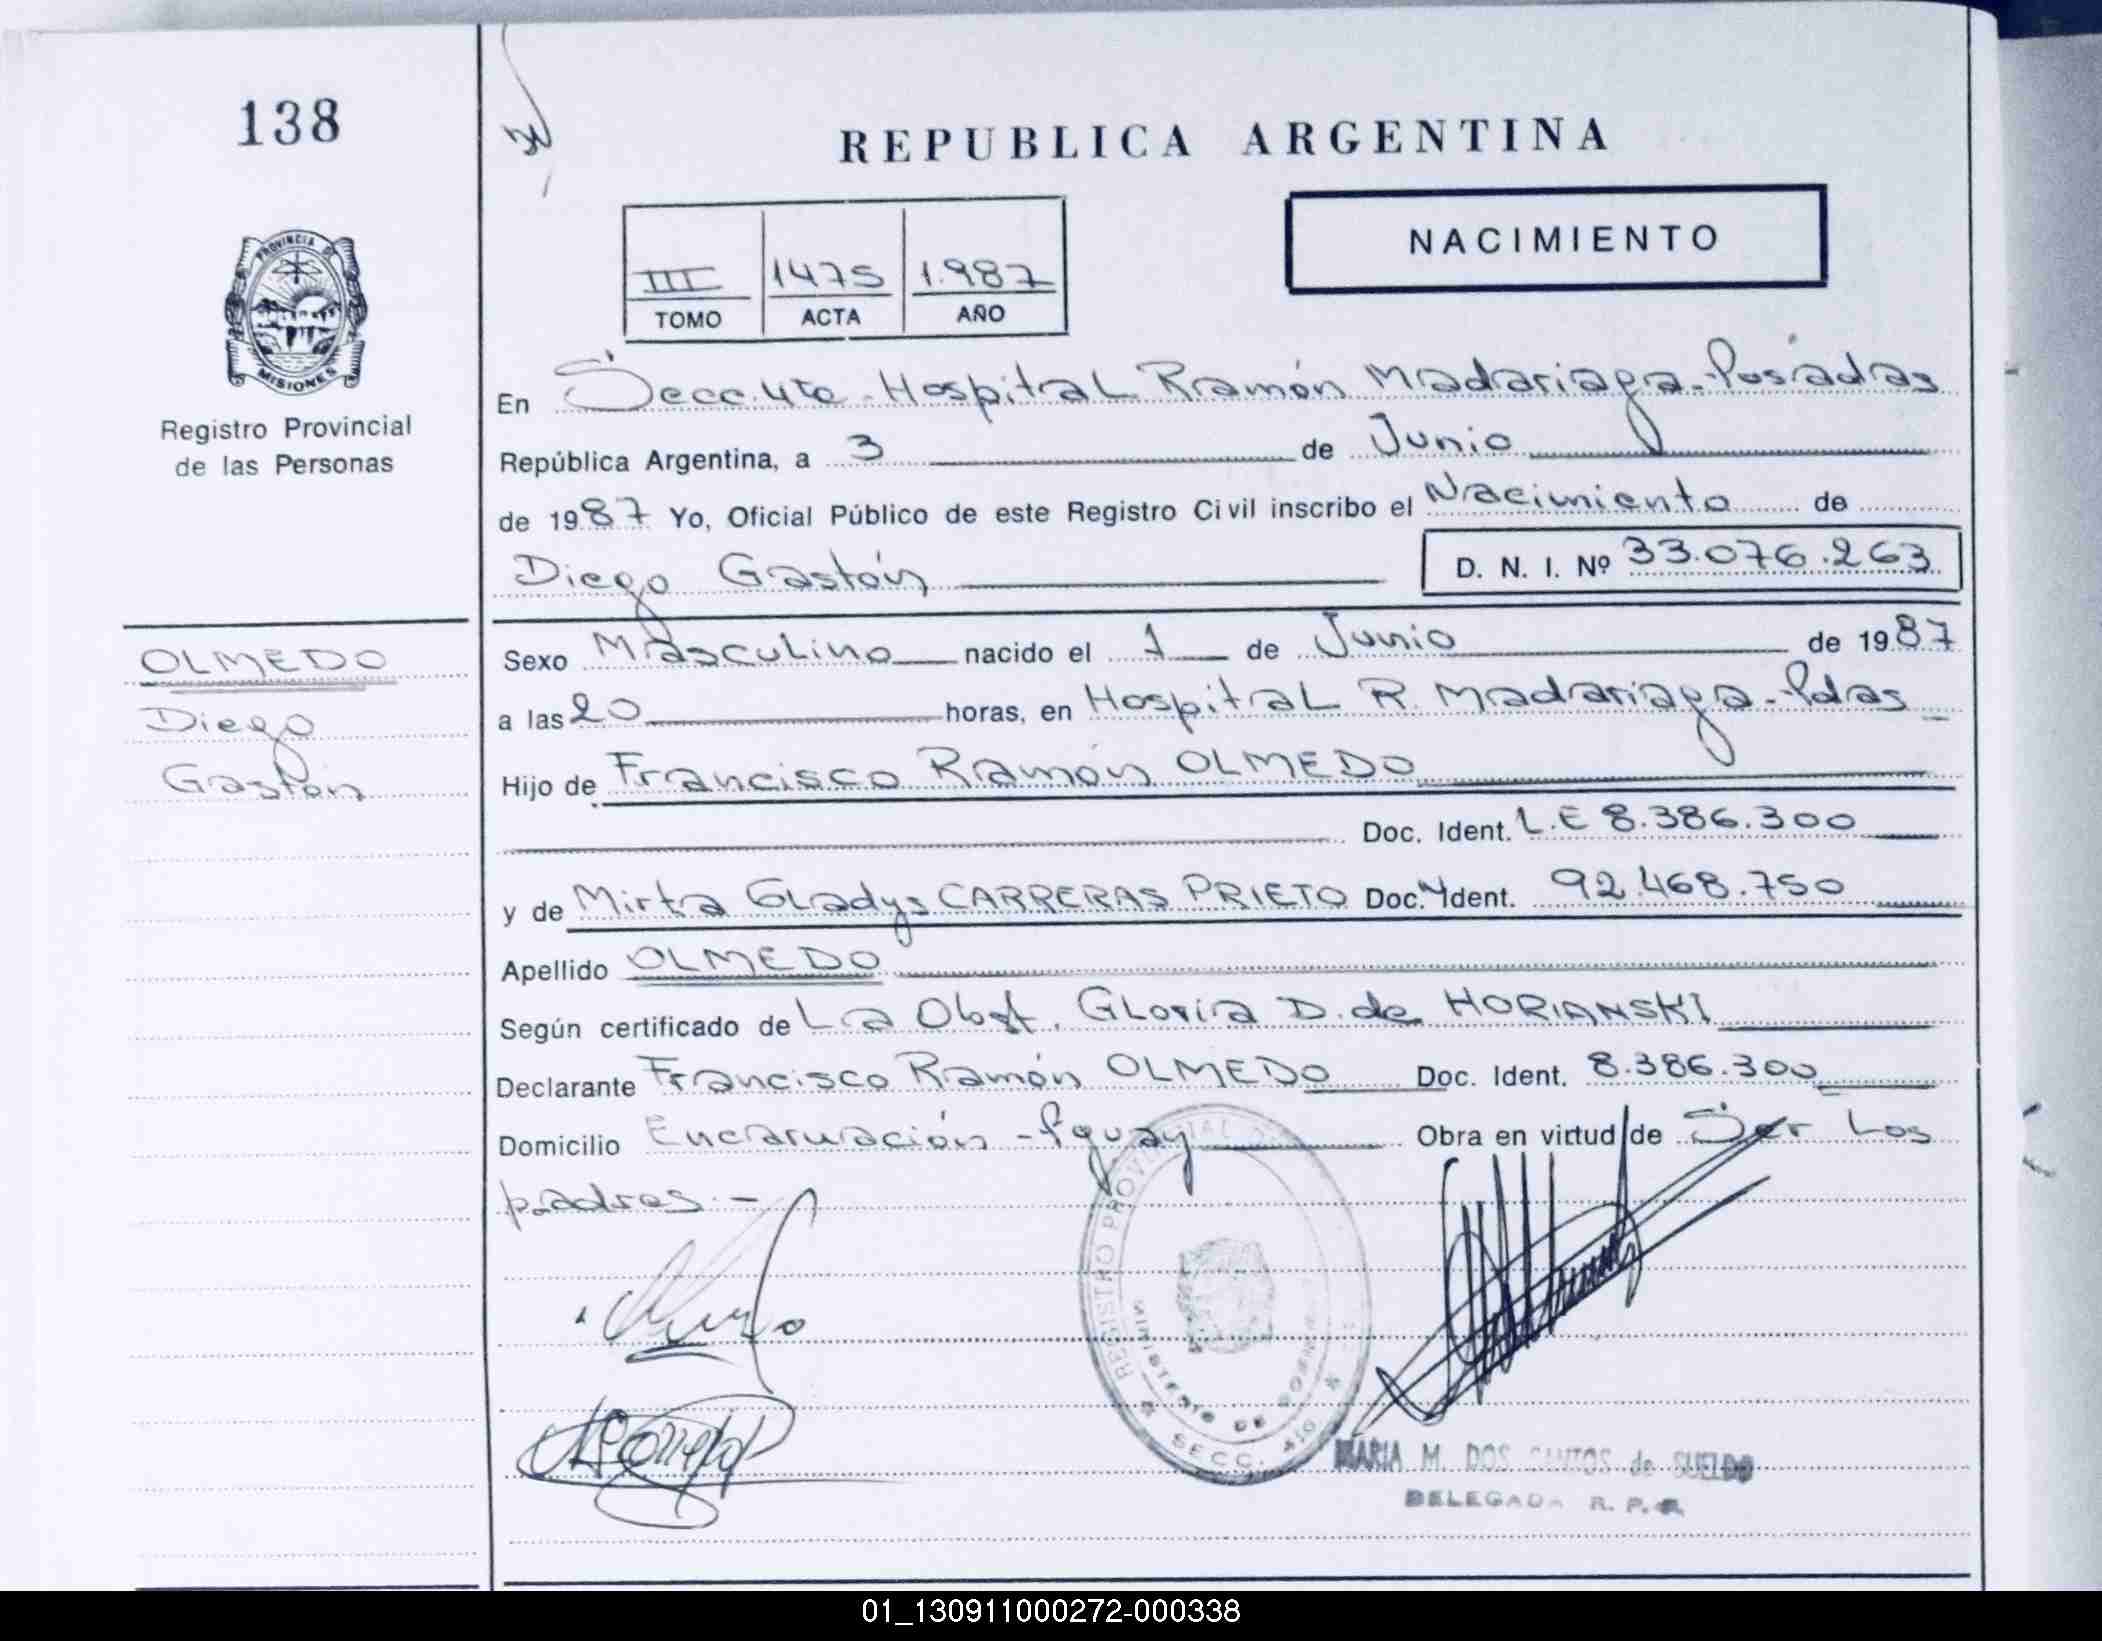 138
REPUBLICA ARGENTINA
NACIMIENTO
III 1475 1.987
TOMO ACTA AÑO
PROVINCIA DE
MISIONES
Registro Provincial
de las Personas
En Secc. 4ta - Hospital Ramón Madariaga - Posadas
República Argentina, a 3 de Junio
de 1987 Yo, Oficial Público de este Registro Civil inscribo el Nacimiento de
Diego Gastón D. N. I. Nº 33.076.263
OLMEDO
Diego
Gastón
Sexo Masculino nacido el 1 de Junio de 1987
a las 20 horas, en Hospital R. Madariaga - Pdas
Hijo de Francisco Ramón OLMEDO
Doc. Ident. L.E 8.386.300
y de Mirta Gladys CARRERAS PRIETO Doc. Ident. 92.468.750
Apellido OLMEDO
Según certificado de La Obst. Gloria D. de HORIANSKI
Declarante Francisco Ramón OLMEDO Doc. Ident. 8.386.300
Domicilio Encarnación - Pguay Obra en virtud de Ser Los
padres.-
REGISTRO PROVINCIAL
MINISTERIO DE
SECC.
MARIA M. DOS SANTOS de SUELDO
DELEGADA R. P.
01_130911000272-000338